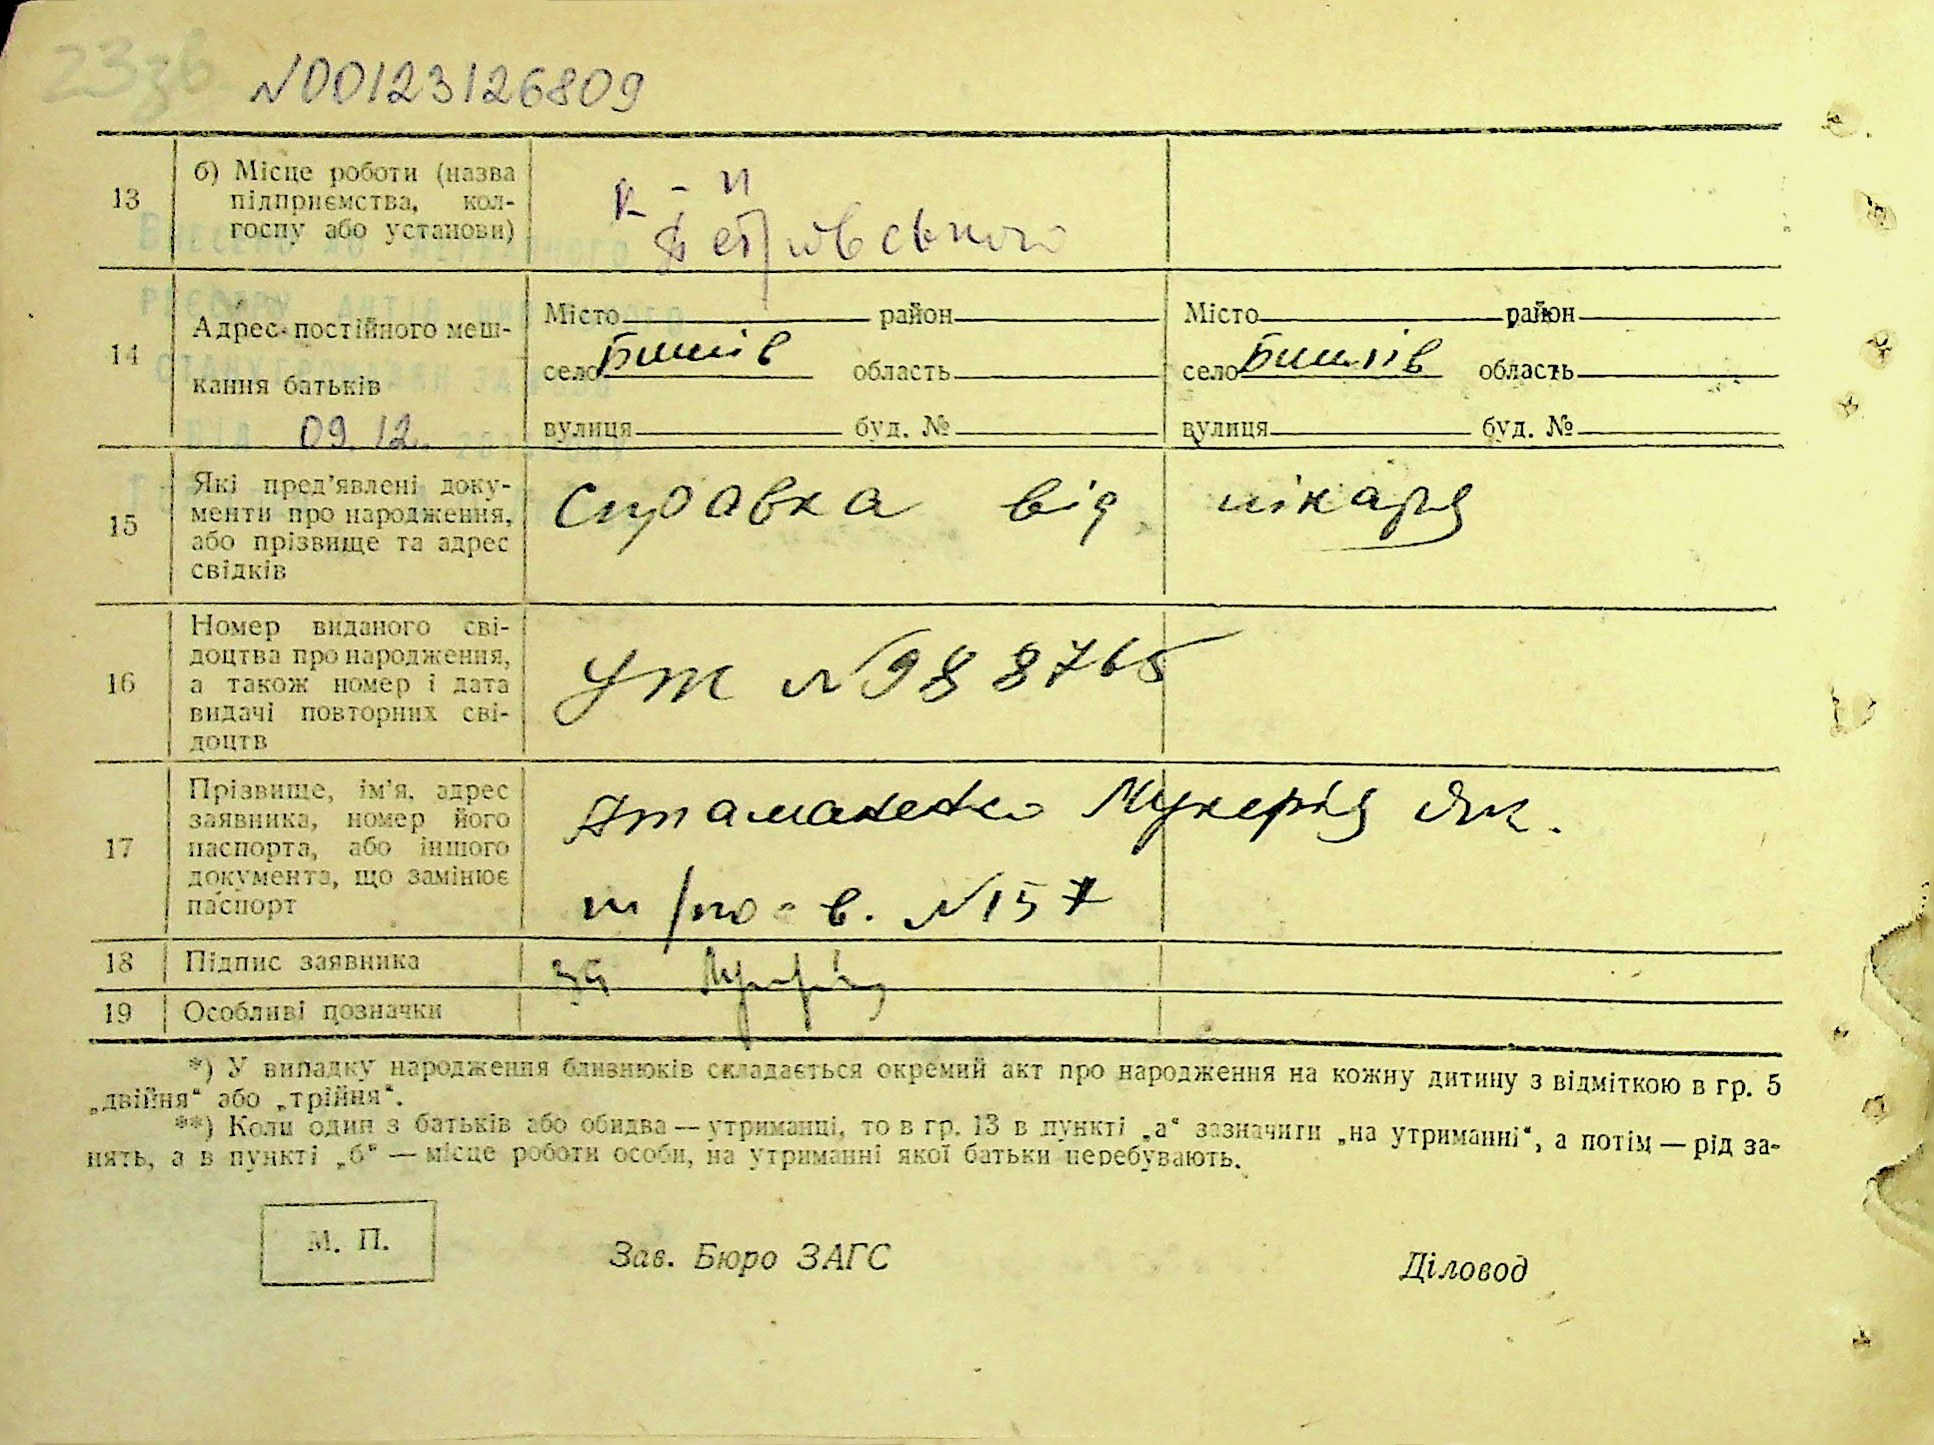 23зв
№00123126809
13 б) Місце роботи (назва
підприємства, кол-
госпу або установи)
к - п
Петрівського
14 Адрес постійного меш-
кання батьків
Місто район Місто район
село Бишів область село Бишів область
вулиця буд. № вулиця буд. №
09.12.
15 Які пред’явлені доку-
менти про народження,
або прізвище та адрес
свідків
Справка від лікаря
16 Номер виданого сві-
доцтва про народження,
а також номер і дата
видачі повторних сві-
доцтв
УТ №988765
17 Прізвище, ім’я, адрес
заявника, номер його
паспорта, або іншого
документа, що замінює
паспорт
Атаманенко Мукерія Як.
в. №157
18 Підпис заявника
за
19 Особливі позначки
*) У випадку народження близнюків складається окремий акт про народження на кожну дитину з відміткою в гр. 5
„двійня“ або „трійня“.
**) Коли один з батьків або обидва — утриманці, то в гр. 13 в пункті „а“ зазначити „на утриманні“, а потім — рід за-
нять, а в пункті „б“ — місце роботи особи, на утриманні якої батьки перебувають.
М. П.
Зав. Бюро ЗАГС
Діловод